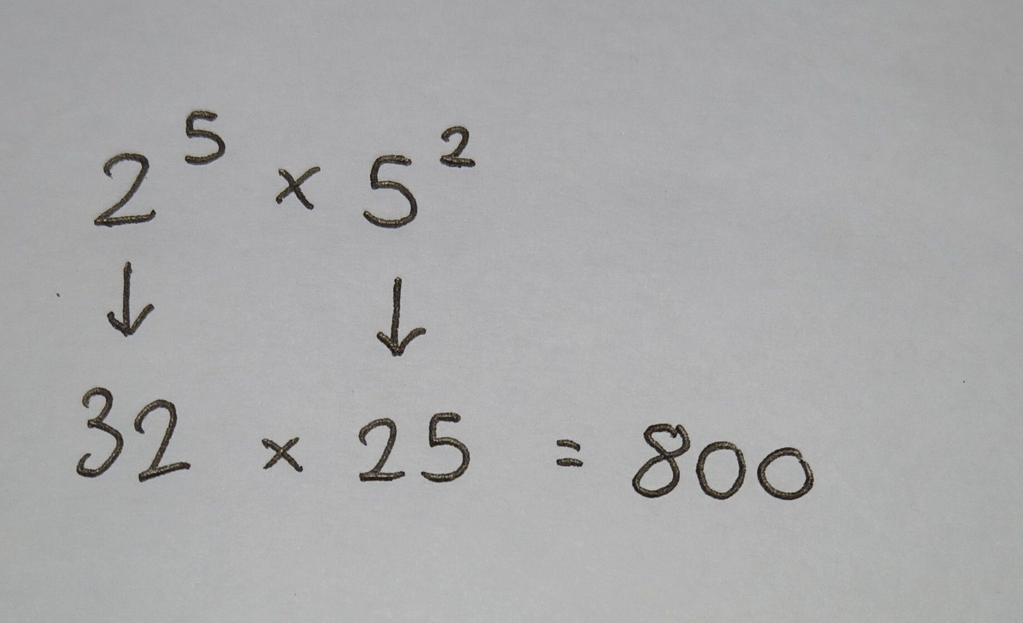 2⁵ × 5²
↓ ↓
32 × 25 = 800